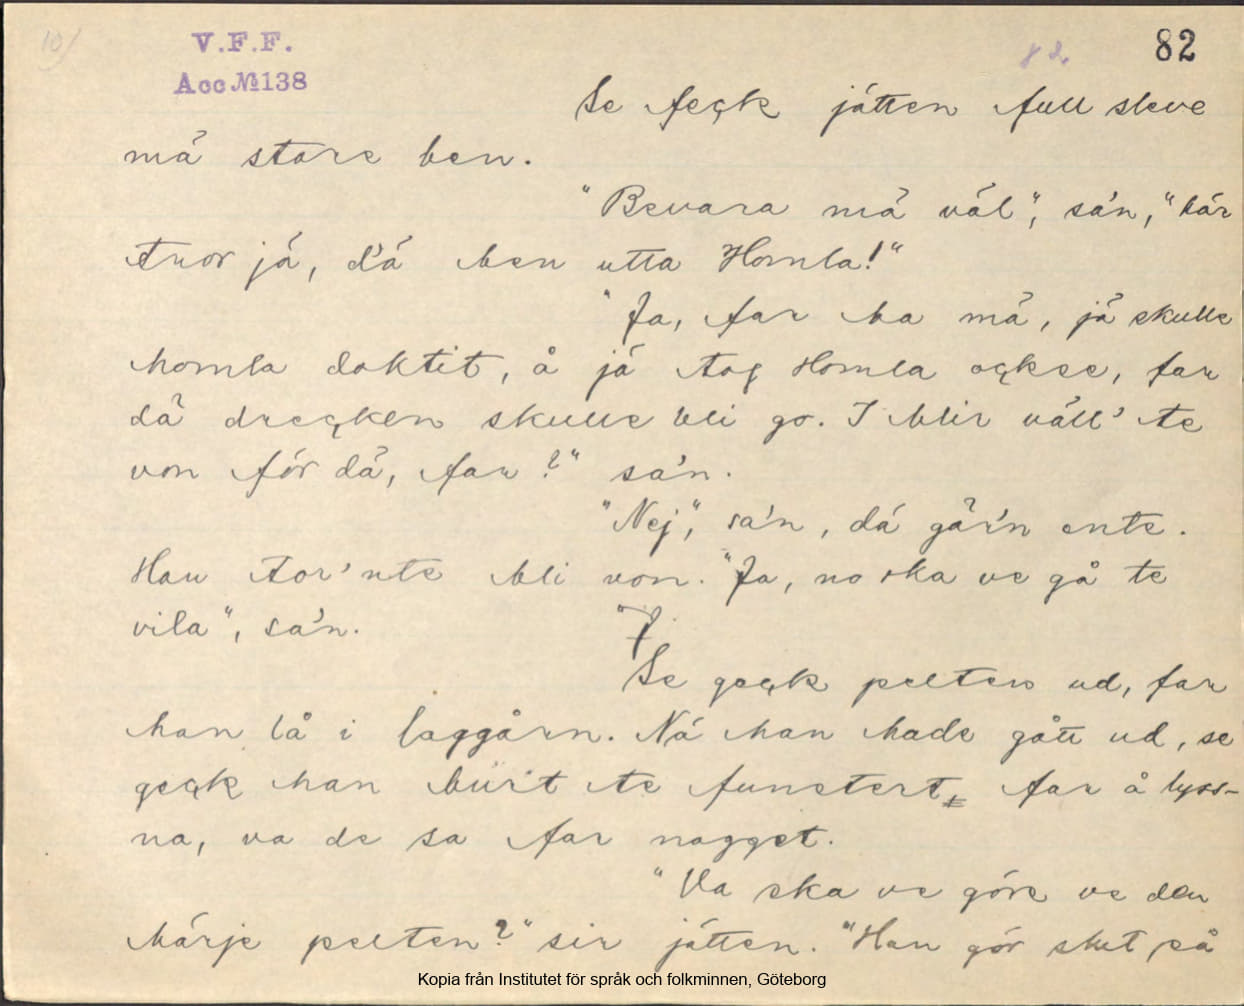 10/
V.F.F.
Acc № 138
82
82
Se feck jätten full sleve
mä store ben.
"Bevara mä väl", sa'n, "här
tror jä, d'ä ben utta Homla!"
"Ja, far ba mä, jä skulle
homla doktit, å jä tog Homla ockse, far
dä drecken skulle bli go. I blir väll' te
von för dä, far?" sa'n.
"Nej", sa'n, dä gär'n ente.
Hau tor'nte bli von. "Ja, no ska ve gå te
vila", sa'n.
Se geck pelten ud, far
han lå i laggårn. Nä han hade gått ud, se
geck han burt te funstert, far å lyss-
na, va de sa far nagget.
"Va ska ve göre ve den
härje pelten?" sir jätten. "Han gör slut på
Kopia från Institutet för språk och folkminnen, Göteborg